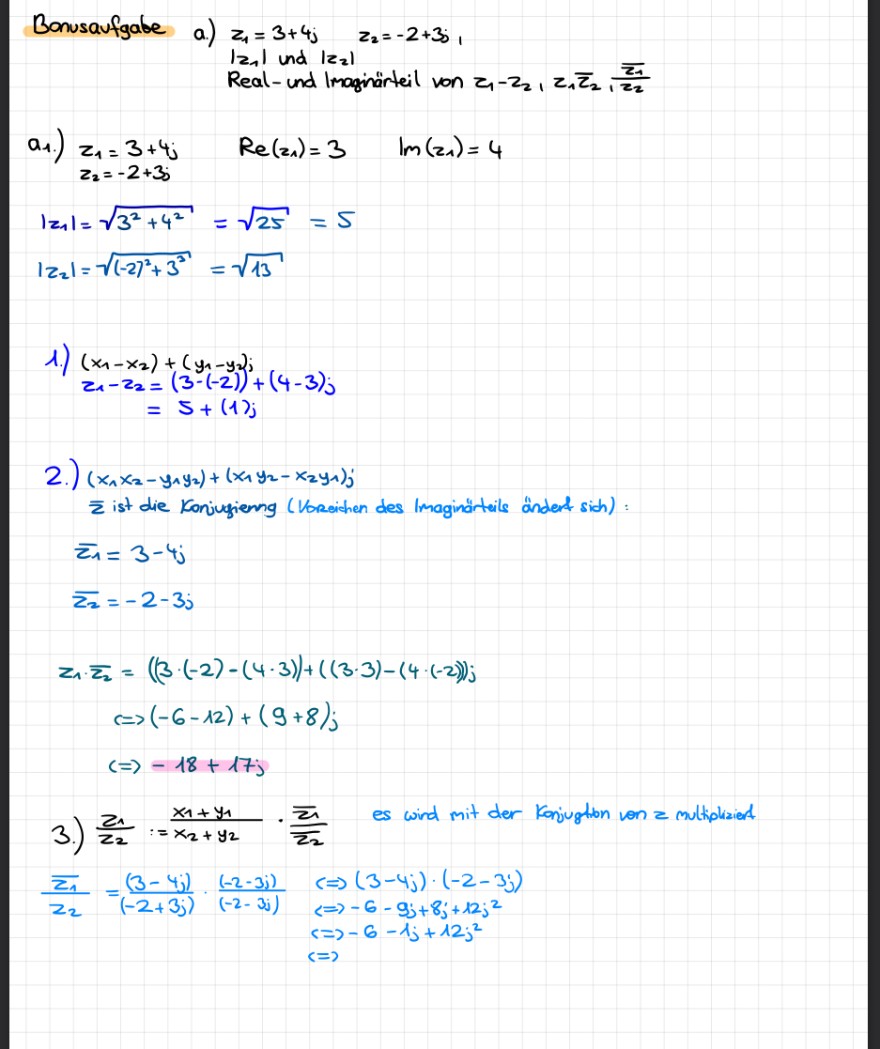 Bonusaufgabe a.) z₁ = 3+4j z₂ = -2+3j ,
|z₁| und |z₂|
Real- und Imaginärteil von z₁-z₂ , z₁z̅₂ , z̅₁/z₂
a₁.) z₁ = 3+4j Re(z₁) = 3 Im(z₁) = 4
z₂ = -2+3j
|z₁| = √(3² + 4²) = √25 = 5
|z₂| = √((-2)² + 3³) = √13
1.) (x₁-x₂) + (y₁-y₂)j
z₁-z₂ = (3-(-2)) + (4-3)j
= 5 + (1)j
2.) (x₁x₂ - y₁y₂) + (x₁y₂ - x₂y₁)j
z̅ ist die Konjugierung (Vorzeichen des Imaginärteils ändert sich) :
z̅₁ = 3-4j
z̅₂ = -2-3j
z₁·z̅₂ = ((3·(-2) - (4·3)) + ((3·3) - (4·(-2)))j
<=> (-6-12) + (9+8)j
<=> -18 + 17j
3.) z₁/z₂ := (x₁+y₁)/(x₂+y₂) · z̅₁/z̅₂ es wird mit der Konjugtion von z multipliziert
z̅₁/z₂ = (3-4j)/(-2+3j) · (-2-3j)/(-2-3j) <=> (3-4j)·(-2-3j)
<=> -6 - 9j + 8j + 12j²
<=> -6 - 1j + 12j²
<=>